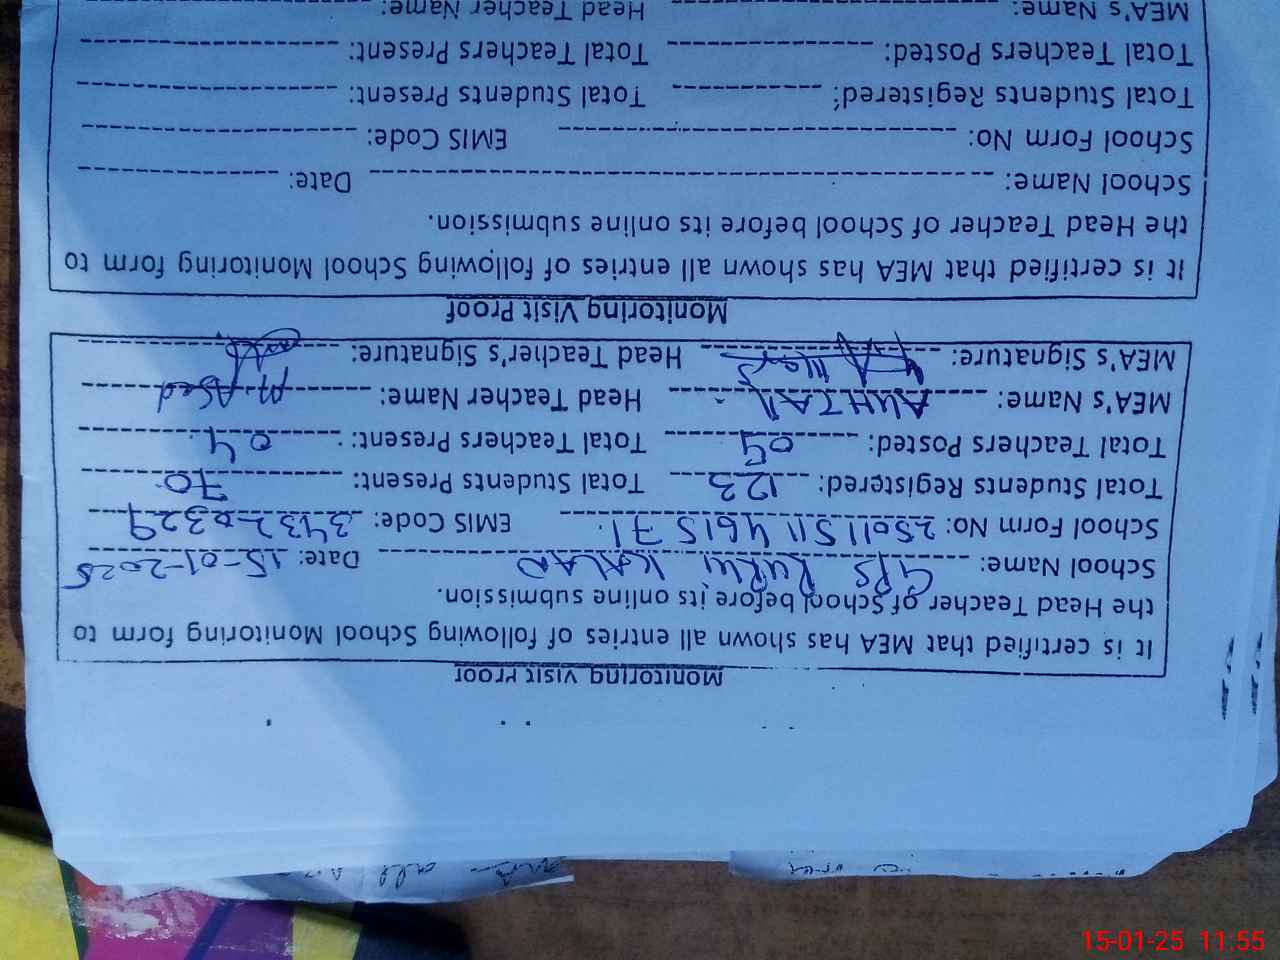 Monitoring Visit Proof
It is certified that MEA has shown all entries of following School Monitoring School form to
the Head Teacher of School before its online submission.
School Name: GPS KURLI KALAN Date: 15-01-2025
School Form No: 25011511461571 EMIS Code: 34320329
Total Students Registered: 123 Total Students Present: 70
Total Teachers Posted: 04 Total Teachers Present: 04
MEA's Name: Head Teacher Name: M. Abed
MEA's Signature: Head Teacher's Signature:
Monitoring Visit Proof
It is certified that MEA has shown all entries of following School Monitoring School form to
the Head Teacher of School before its online submission.
School Name: Date:
School Form No: EMIS Code:
Total Students Registered: Total Students Present:
Total Teachers Posted: Total Teachers Present:
MEA's Name: Head Teacher Name:
15-01-25 11:55